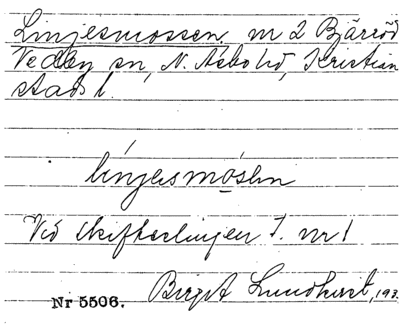 Linjesmossen, nr 2 Bjäröd
Vedby sn, N. Åsbo hd, Kristian
stads l.
línjęsmósln
Vid skifteslinjen t. nr 1
Nr 5506. Birgit Lundkvist, 193